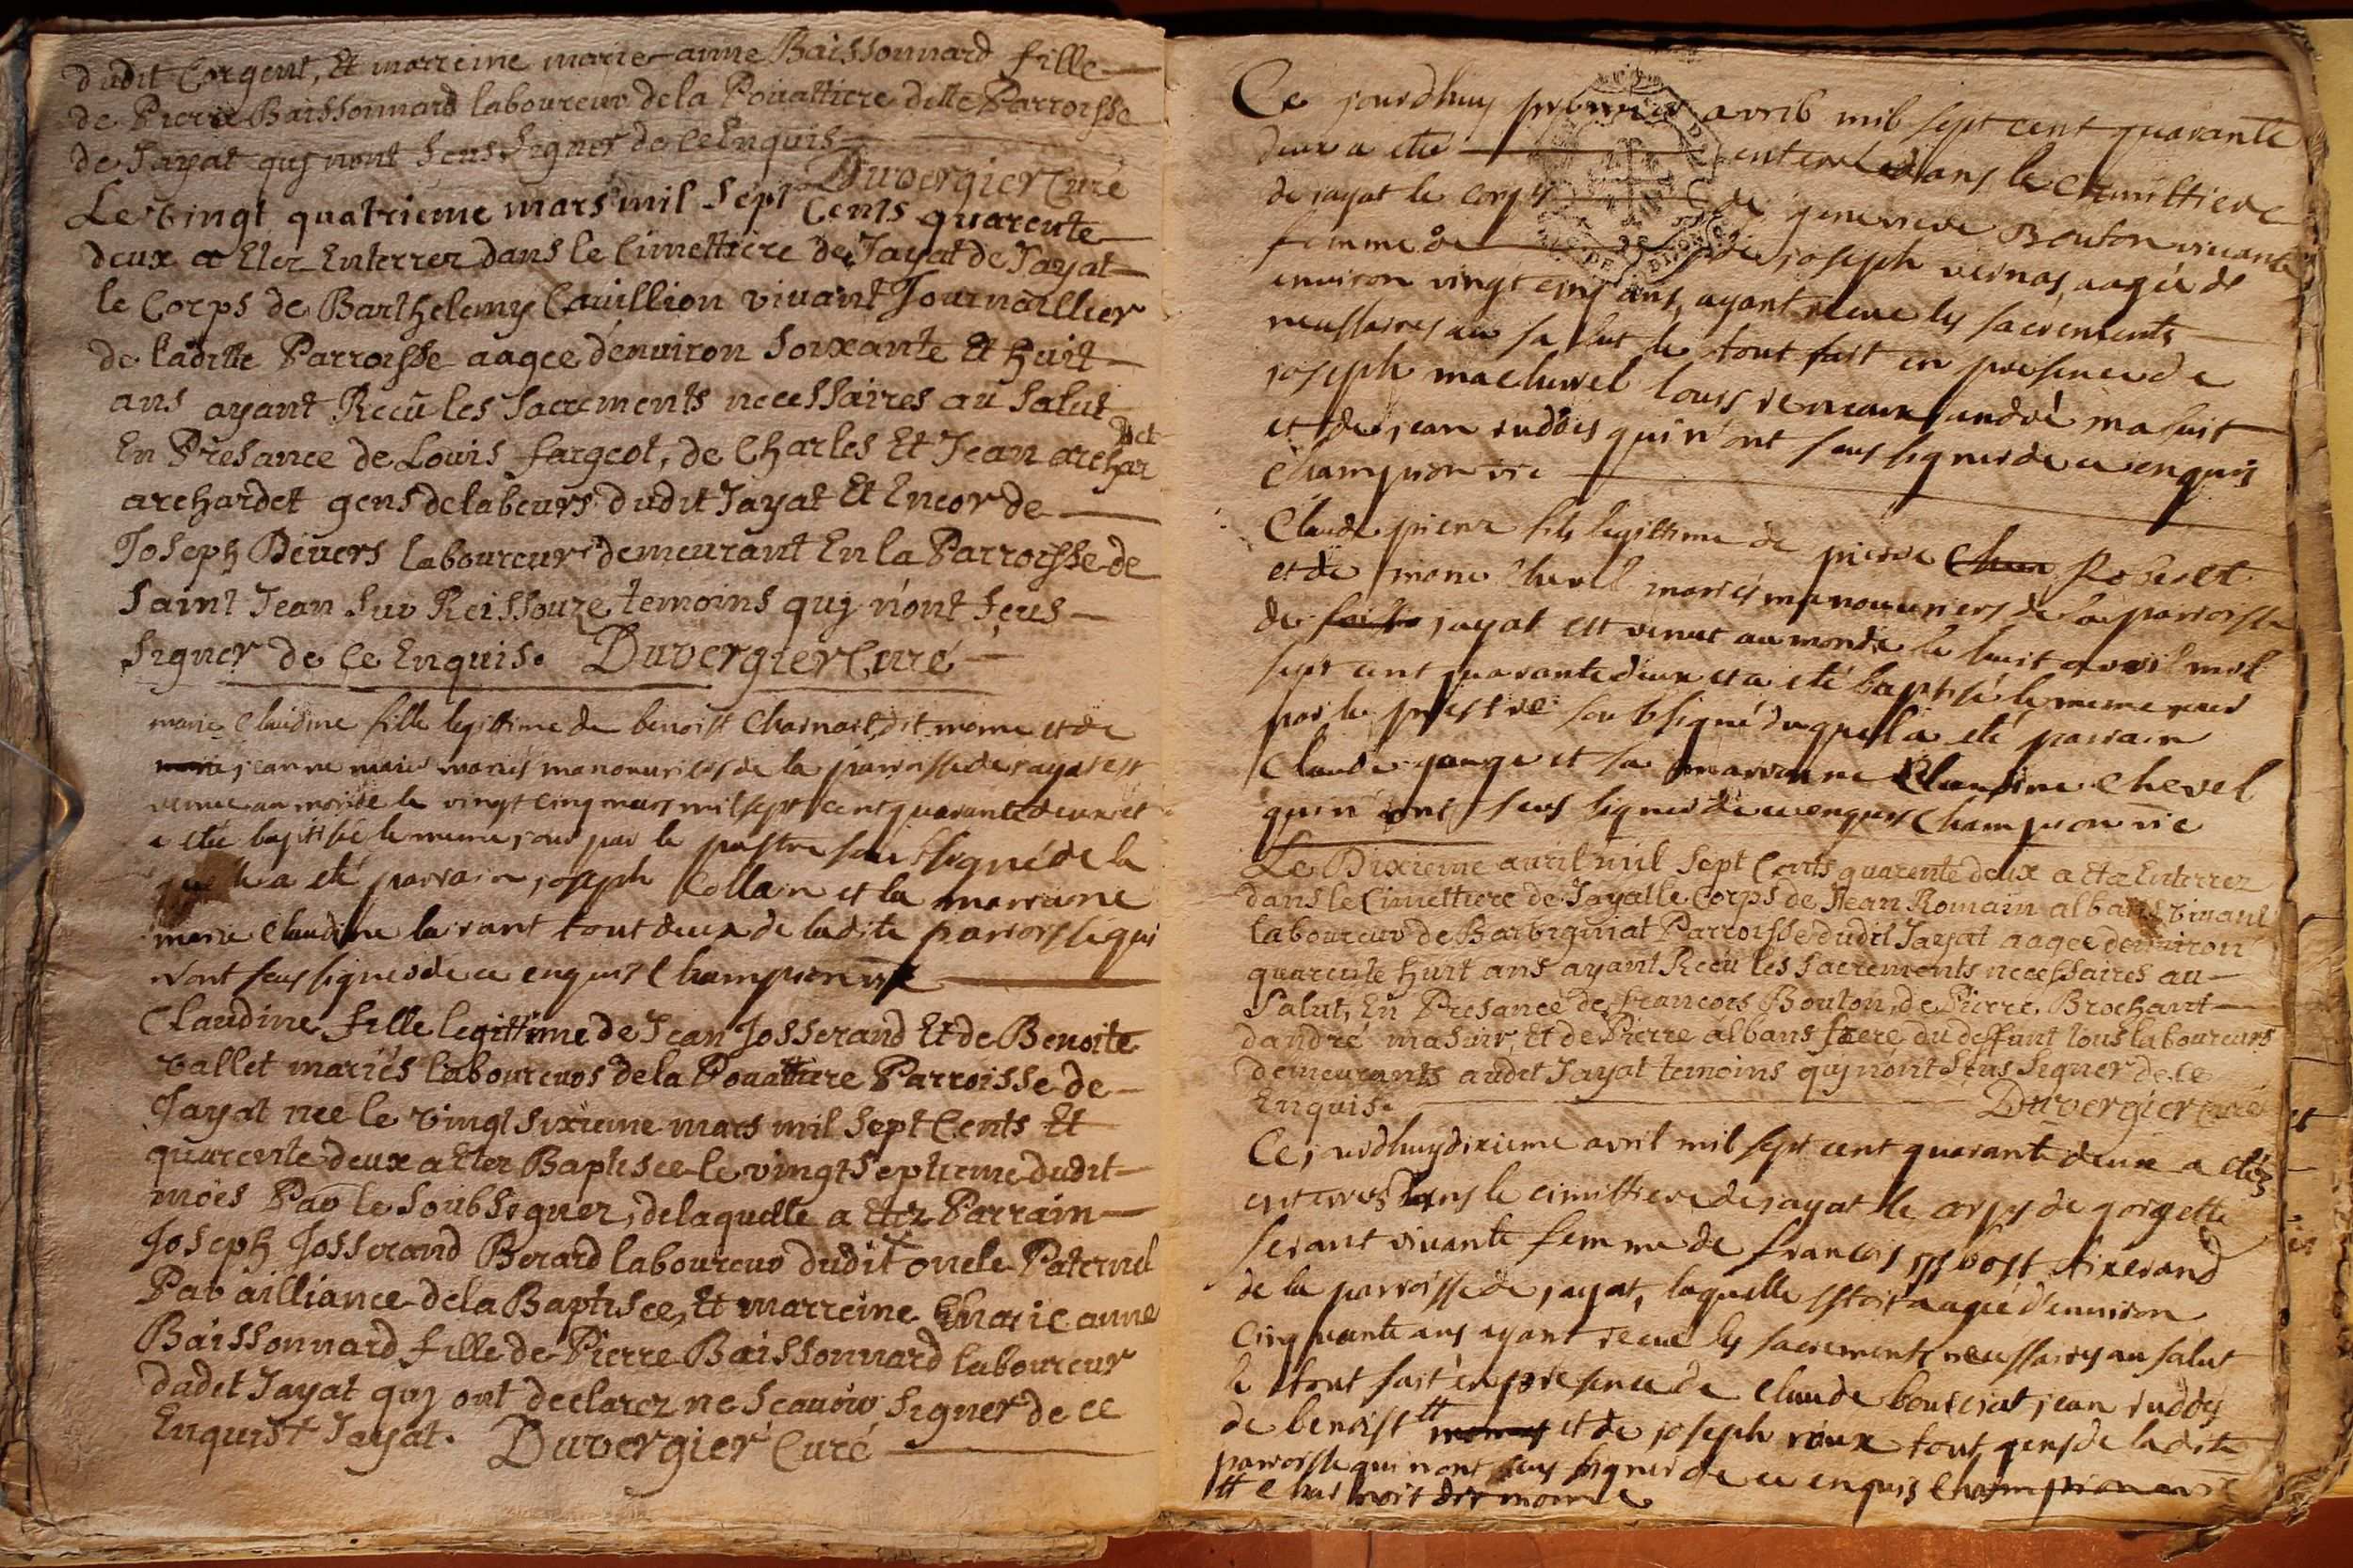 dudit Corgent, Et marreine marie anne Baissonnard fille
de Pierre Baissonnard laboureur de la Pouattiere ditte Parroisse
de Jayat quj nont Sçus Signer de Ce Enquis
Duvergier Curé
Le vingt quatrieme mars mil Sept Cents quarente
deux a Etez Enterrez dans le Cimettiere de Jayat de Jayat
le Corps de Barthelemy Cauillion vivant Journaillier
de laditte Parroisse aagee d'enuiron Soixante Et huit
ans ayant Receu les Sacrements necessaires au Salut
En Presance de Louis fargeot, de Charles Et Jean archar
det
archardet gens de labeurs dudit Jayat Et Encor de
Joseph Deuers laboureur demeurant En la Parroisse de
Saint Jean Sur Reissouze temoins quj n'ont Sçus
Signer de Ce Enquis. Duvergier Curé
marie Claudine fille legittime de benoist Charnoit dit moine et de
marie jeanne mariés manouuriers de la parroisse de jayat est
venue au monde le vingt cinq mars mil sept cent quarante deux et
a eté baptisée le meme jour par le prestre soubsigné de la
quelle a eté parrain joseph Collain et la marraine
marie Claudine lairant tout deux de ladite parroisse qui
n'ont sçus signer de ce enquis Champion vic
Claudine fille legittime de Jean Josserand Et de Benoite
vallet mariés laboureurs de la Pouattiere Parroisse de
Jayat née le vingt Sixieme mars mil Sept Cents Et
quarente deux a Etez Baptisee le vingt Septieme dudit
mois Par le Soub Signez, de laquelle a Etez Parrain
Joseph Josserand Berard laboureur dudit oncle Paternel
Par ailliance de la Baptisee, Et marreine Marie anne
Baissonnard fille de Pierre Baissonnard laboureur
dudit Jayat quj ont declarez ne Scauoir Signer de ce
Enquist Jayat. Duvergier Curé
Ce jourdhuy premier avril mil sept cent quarante
deux a eté enterré dans le cimittiere
de jayat le corps de genevieve Bouton vivante
femme de de joseph vernas, aagée de
environ vingt cinq ans, ayant receue les sacrements
necessaires au salut le tout fait en presence de
joseph machurel louis renoux andré masuir
et de jean rudois qui n'ont sçus signer de ce enquis
Champion vic
Claude pierre fils legittime de pierre Roberet
et de marie Chevel mariés manouuriers de la parroisse
de jayat est venut au monde le huit avril mil
sept cent quarante deux et a eté baptisé le meme jour
par le prestre soubsigné duquel a eté parrain
Claude gauge et la marraine Claudine Chevel
qui n'ont sçus signer de ce enquis Champion vic
Le Dixieme auril mil Sept Cents quarente deux a Etez Enterrez
dans le Cimettiere de Jayat le Corps de Jean Romain albans vivant
laboureur de Barbigniat Parroisse dudit Jayat aagee denuiron
quarente huit ans ayant Receu les Sacrements necessaires au
Salut, En Presance de francois Bouton, de Pierre Brochant
dandré masuir, Et de Pierre albans frere du deffunt tous laboureurs
demeurants audit Jayat temoins quj n'ont Sçus Signer de ce
Enquis. Duvergier Curé
Ce jourdhuy dixieme avril mil sept cent quarante deux a etéz
enterréz dans le cimittiere de jayat le corps de gorgette
serant vivante femme de francois pvost tixerand
de la parroisse de jayat, laquelle estoit aagée d'environ
cinquante ans ayant receue les sacrements necessaires au salut
le tout fait en presence de Claude bouscrat jean rudois
de benoist # et de joseph roux tout gens de ladite
parroisse qui n'ont sçus signer de ce enquis Champion vic
# Charnoit dit moine